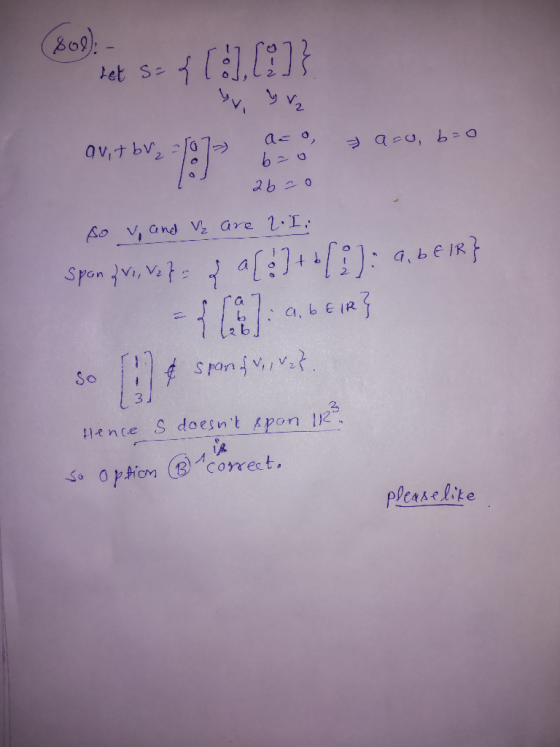 (Sol):-
Let S = { [1 0 0], [0 1 2] }
↘ v₁ ↘ v₂
av₁ + bv₂ = [0 0 0] ⇒ a = 0, b = 0, 2b = 0 ⇒ a=0, b=0
So v₁ and v₂ are L.I.
Span {v₁, v₂} = { a[1 0 0] + b[0 1 2] : a, b ∈ IR }
= { [a b 2b] : a, b ∈ IR }
So [1 1 3] ∉ span {v₁, v₂}.
Hence S doesn't span IR³.
So option (B) is correct.
please like.